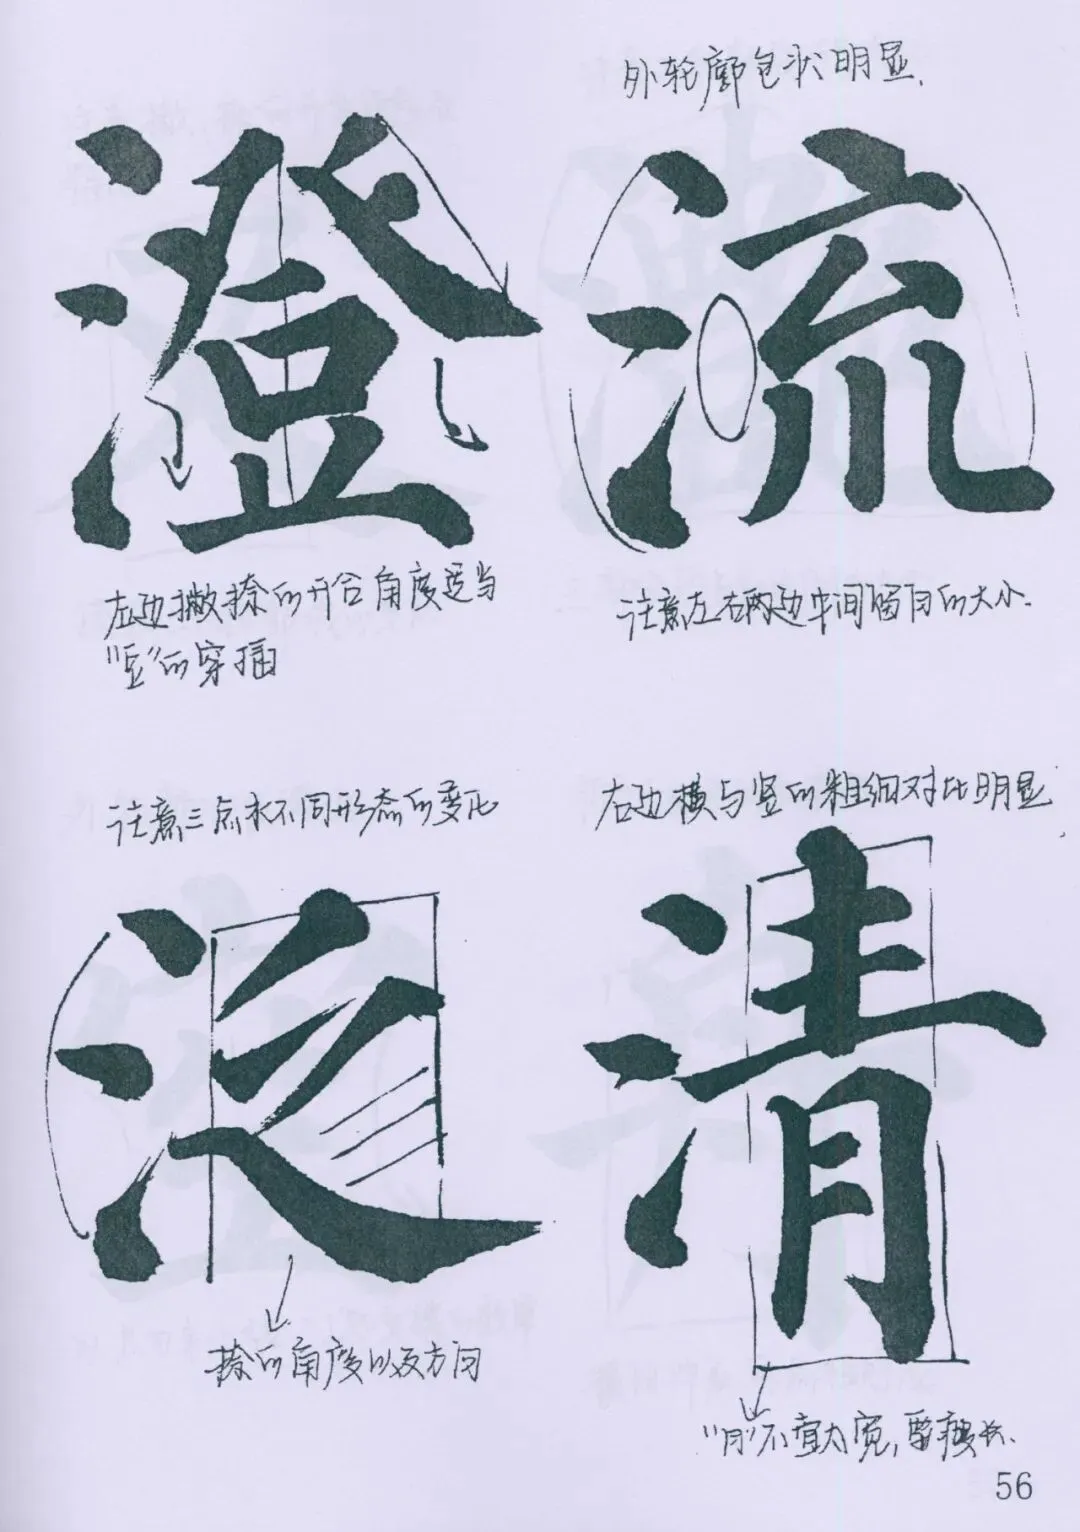 外轮廓包状明显.
澄
流
左边撇捺的开合角度适当
"豆"的穿插
注意左右两边中间留白的大小.
注意三点水不同形态的变化
右边横与竖的粗细对比明显
泛
清
捺的角度以及方向
"月"不宜太宽,要瘦长.
56